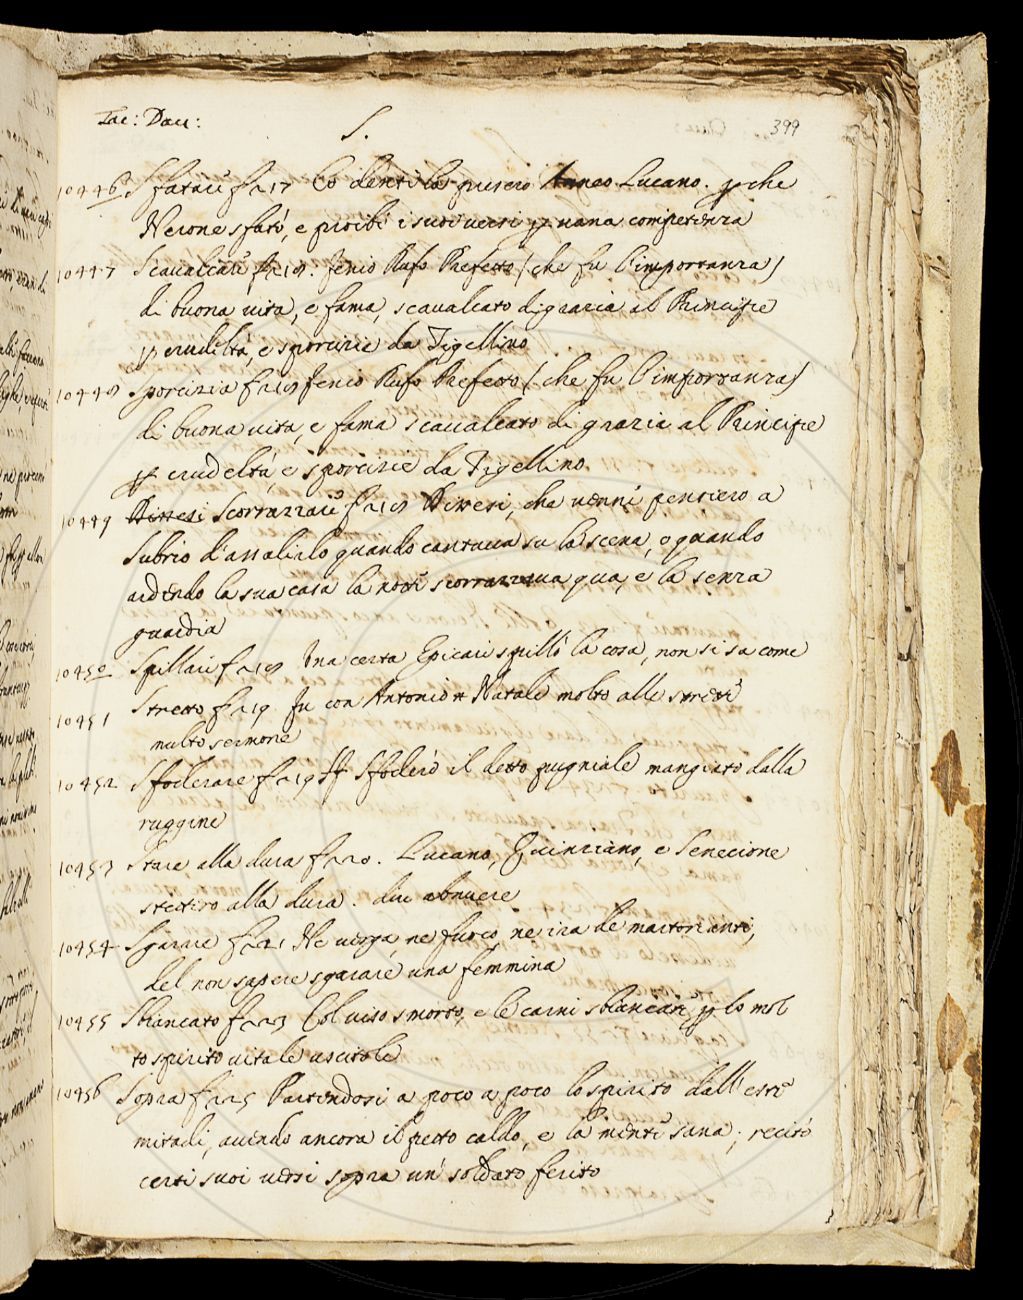 Tac: Dau:
S.
399
10446 Sfatare f 217 Lo dente lo pugnero Anneo Lucano. p che
Nerone sfatò, e proibì i suoi versi p vana competenza
10447 Scavalcare f 218. Fenio Rufo Prefetto (che fu l'importanza)
di buona vita, e fama, scavalcato di grazia al Principe
p crudeltà, e sporcizie da Tigellino
10448 Sporcizia f 218 Fenio Rufo Prefetto (che fu l'importanza)
di buona vita, e fama scavalcato di grazia al Principe
p crudeltà, e sporcizie da Tigellino
10449 Scorrazzare f 218 che venne pensiero a
Subrio d'assalirlo quando cantava su la scena, o quando
ardendo la sua casa la notte scorrazzava qua, e la senza
guardia
10450 Spillare f 218 Una certa Epicari spillò la cosa, non si sa come
10451 Stretto f 219 Fu con Antonio Natale molto alle strette
multo sermone
10452 Sfoderare f 219 Sfoderò il detto pugniale mangiato dalla
ruggine
10453 Stare alla dura f 220. Lucano, Quinziano, e Senecione
stettero alla dura. diu abnuere
10454 Sgarare f 221 Ne verga, ne fuoco, ne ira de martorianti,
del non sapere sgarare una femmina
10455 Sbiancato f 223 Col viso smorto, e le carni sbiancate, p lo mol
to spirito vitale uscitole
10456 Sopra f 225 Partendosi a poco a poco lo spirito dall'estre
mitadi, avendo ancora il petto caldo, e la mente sana; recitò
certi suoi versi sopra un soldato ferito